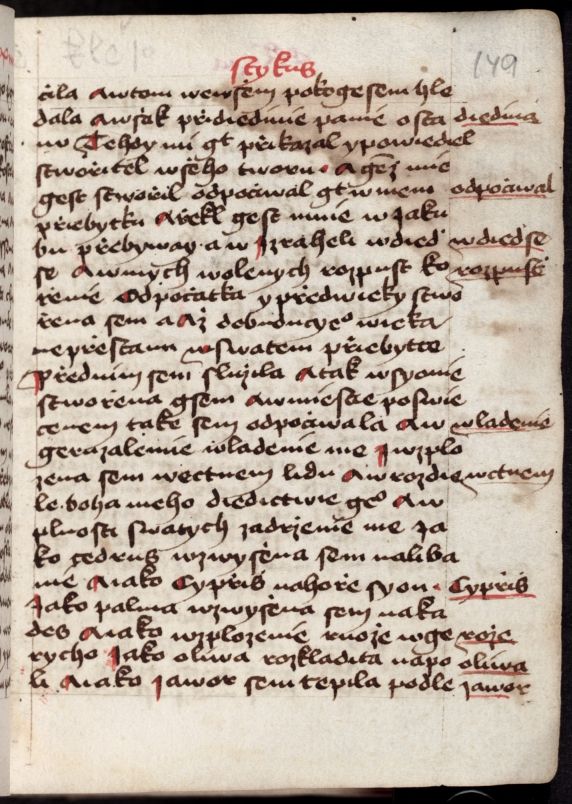 Stykus
149
cila Awtom wewssem pokoge sem hle
dala Awssak przidiedinie panie osta diedinu
nu Tehdy mi gt przikazal y powiedel
stworzitel wsseho tworu · A genz mie
gest stworil odpocziwal gt w mem odpocziwal
prziebytku A rzekl gest mnie w Jaku
bu przebyway a w Jzraheli w died wdiedse
se A w mych wolenych rozpust ko rozpust
rzenie Od poczatka y przedwieky stwo
rzena sem a Az do buduczyeo wieka
neprzestanu w swatem prziebytce
przed nim sem sluzila A tak w syonie
stworzena gsem A w miestie poswie
cenem take sem odpocziwala A w wladenie
geruzalemie wladenie me J wzplo
zena sem wectnem lidu A w rozdie wctnem
le boha meho diedictwie geo A w
plnosti swatych zadrzenie me Ja
ko cedrus wzwyssena sem na liba
nie A iako Cypris na horze syon · Cypris
Jako palma wzwyssena sem na ka
des A iako wzplozenie ruoze w ge roze
rycho Jako oliwa rozkladita na po oliwa
li A iako Jawor sem tepila podle Jawor